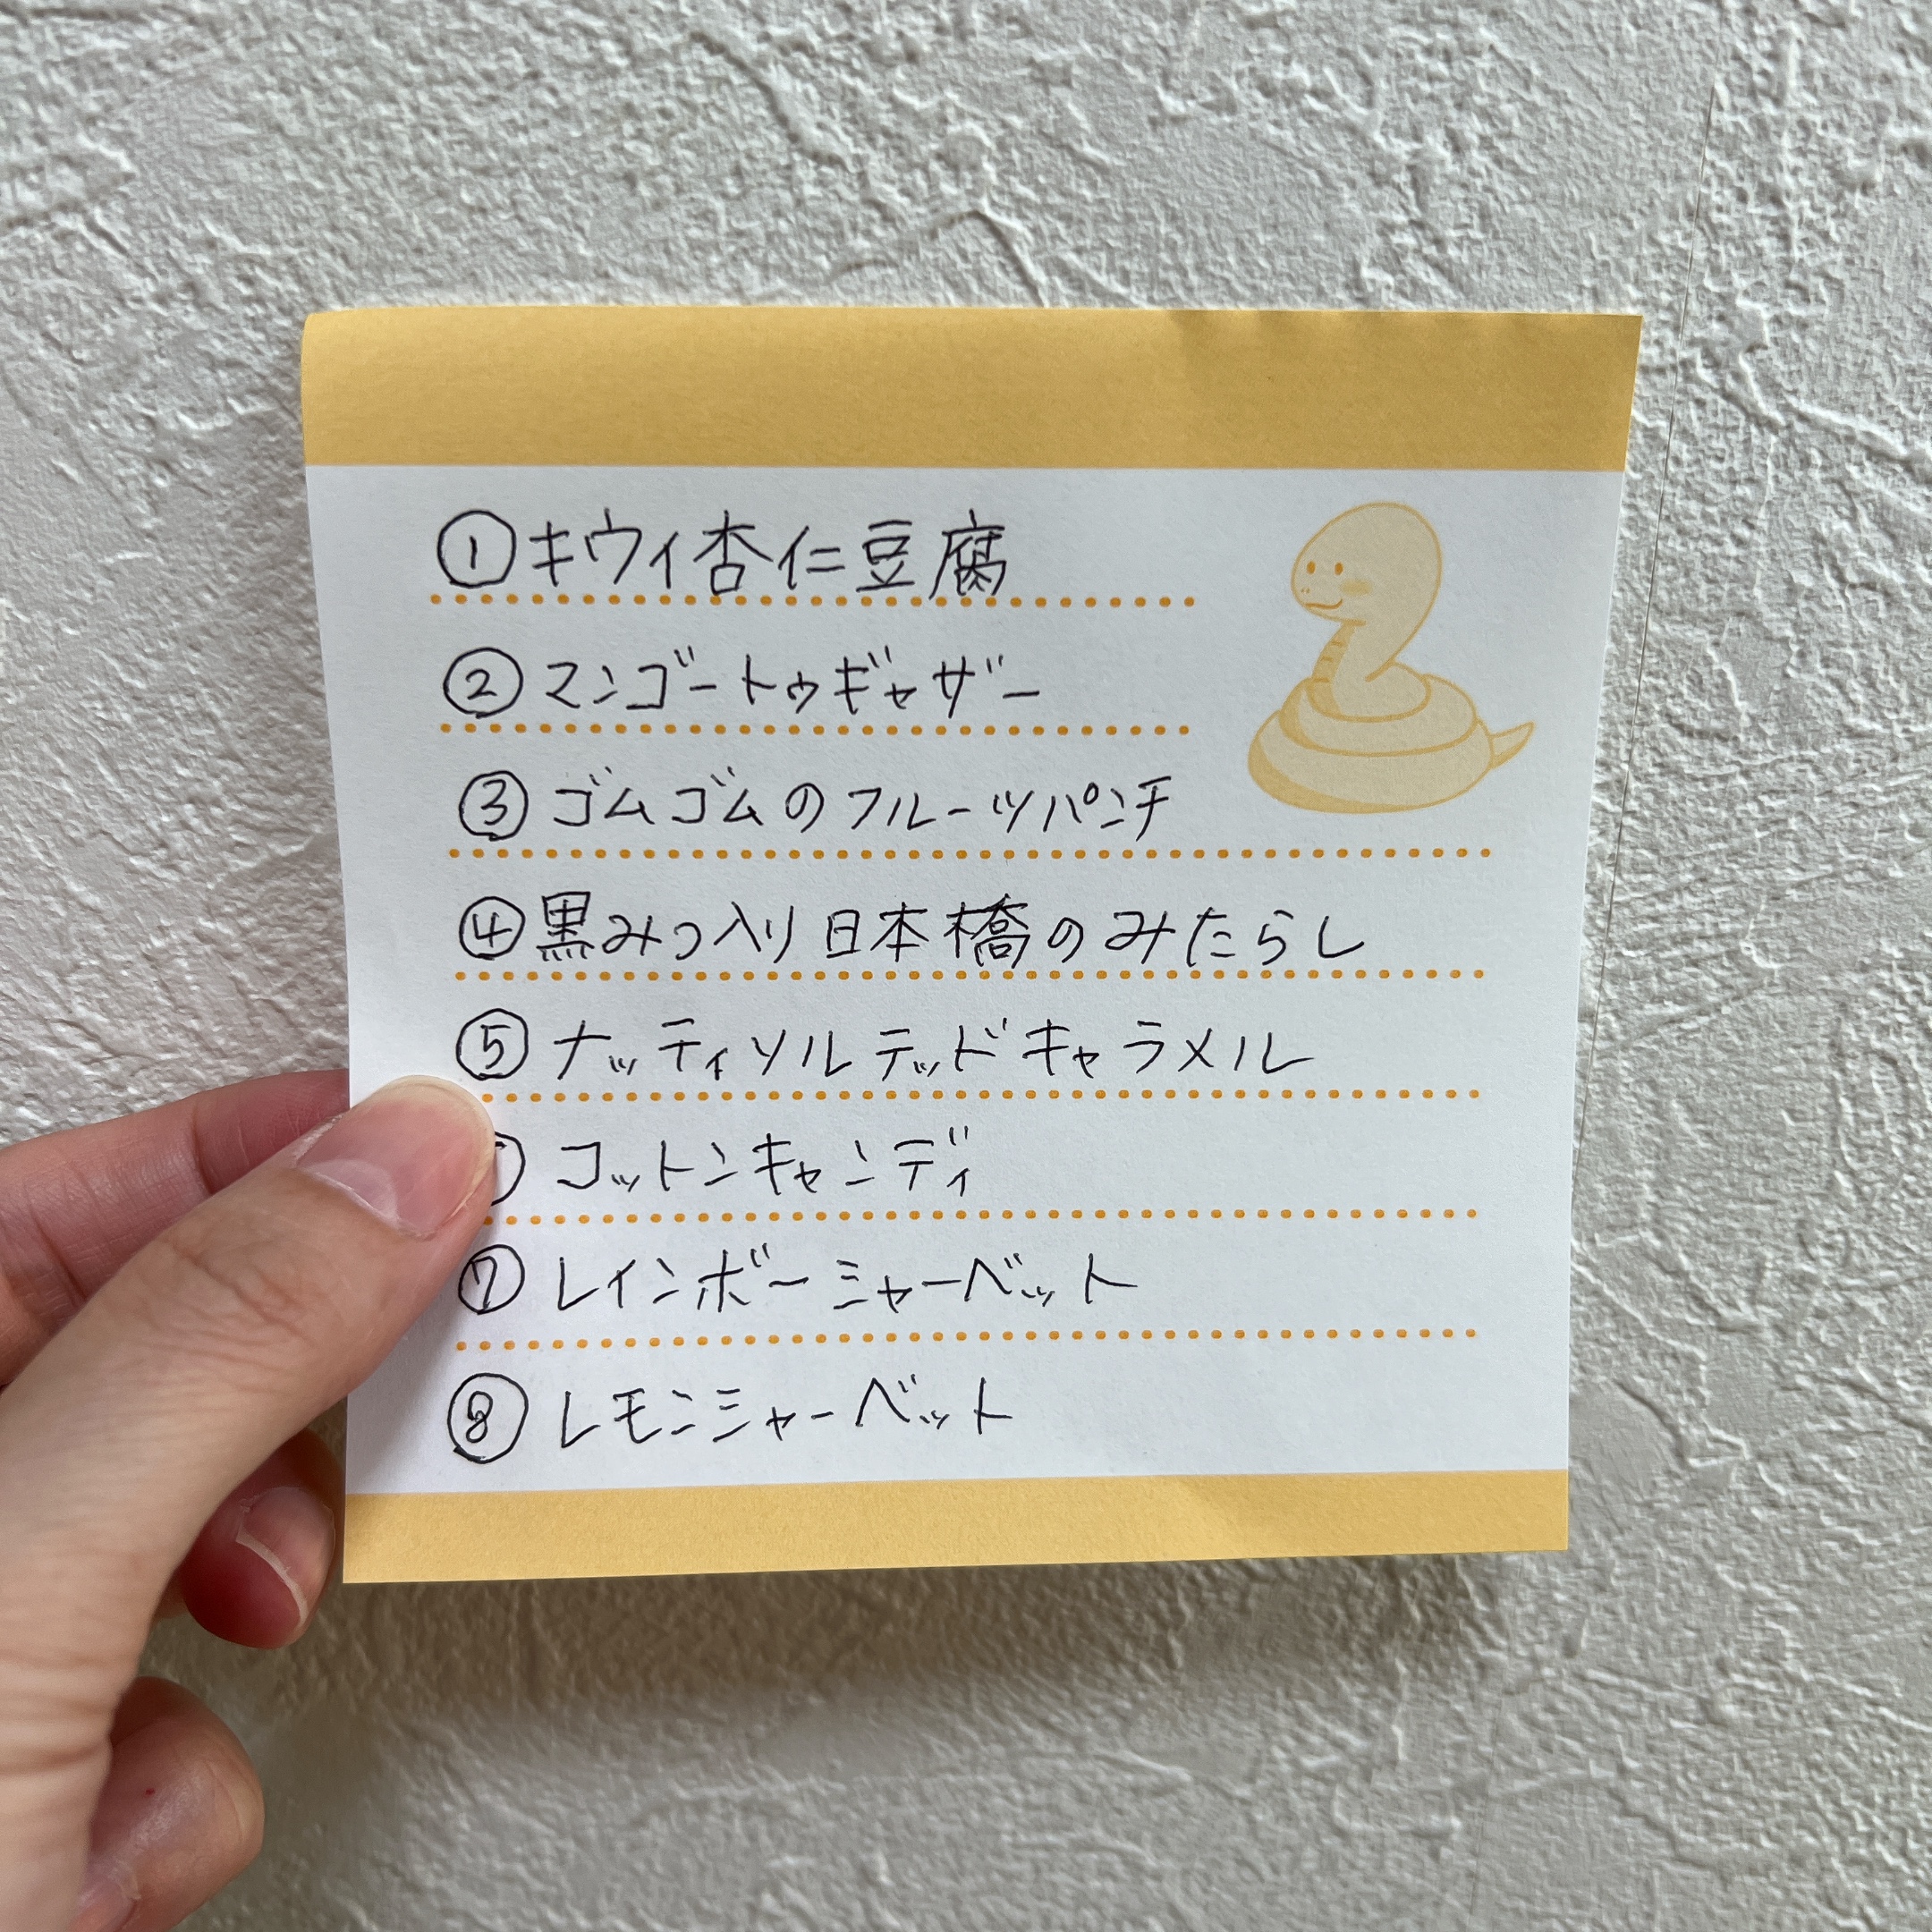 ①キウイ杏仁豆腐
②マンゴートゥギャザー
③ゴムゴムのフルーツパンチ
④黒みつ入り日本橋のみたらし
⑤ナッティソルテッドキャラメル
コットンキャンディ
⑦レインボーシャーベット
⑧レモンシャーベット